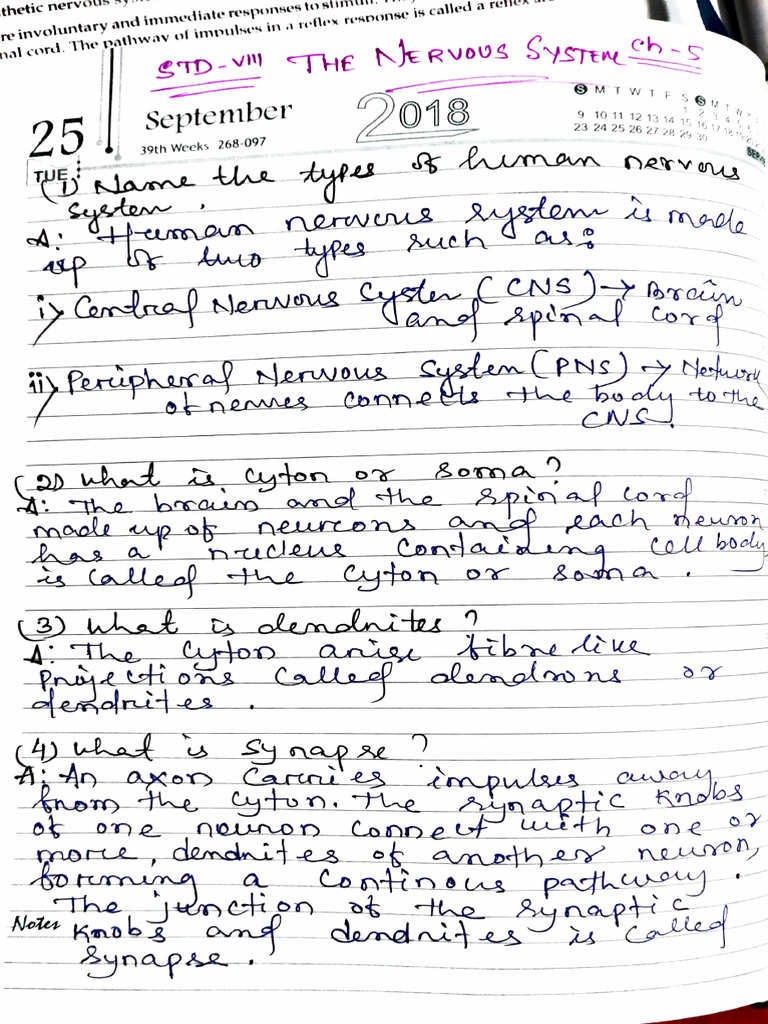 thetic nervous
re involuntary and immediate responses to stimuli.
nal cord. The pathway of impulses in a reflex response is called a reflex
STD-VIII THE NERVOUS SYSTEM Ch-5
25 September 2018
39th Weeks 268-097
TUE
S M T W T F S S M T W T
9 10 11 12 13 14 15
23 24 25 26 27 28 29 30
(1) Name the types of human nervous
system.
A: Human nervous system is made
up of two types such as:
i) Central Nervous System (CNS) → Brain
and spinal cord
ii) Peripheral Nervous System (PNS) → Network
of nerves connects the body to the
CNS.
(2) What is cyton or soma?
A: The brain and the spinal cord
made up of neurons and each neuron
has a nucleus containing cell body
is called the cyton or soma.
(3) What is dendrites?
A: The cyton arise fibre like
projections called dendrons or
dendrites.
(4) What is synapse?
A: An axon carries impulses away
from the cyton. The synaptic knobs
of one neuron connect with one or
more, dendrites of another neuron,
forming a continous pathway.
The junction of the synaptic
Notes knobs and dendrites is called
synapse.